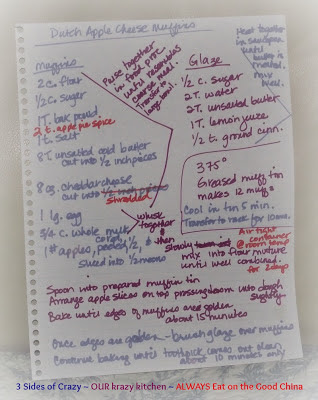 Dutch Apple Cheese Muffins
Muffins
2 c. flour
1/2 c. sugar
1 T. bak. powd.
2 t. apple pie spice
1 t. salt
8 T. unsalted cold butter
cut into 1/2 inch pieces
8 oz. cheddar cheese
cut into 1/2 inch pieces
shredded
1 lg. egg
3/4 c. whole milk
1# apples, peeled, cored, 1/2, &
sliced into 1/2 moons
Pulse together
in food proc
until resembles
coarse meal.
Transfer to
large bowl.
whisk
together
& then
slowly
mix into flour mixture
until well combined.
Glaze
1/2 c. sugar
2 T. water
2 T. unsalted butter
1 T. lemon juice
1/2 t. ground cinn.
Heat together
in saucepan
until
butter is
melted,
mix
well.
375°
Greased muffin tin
makes 12 muffins
Cool in tin 5 min.
Transfer to rack for 10 min.
Air tight
container
@ room temp
for 2 days
Spoon into prepared muffin tin
Arrange apple slices on top pressing down into dough
slightly.
Bake until edges of muffins are golden
about 15 minutes
Once edges are golden - brush glaze over muffins
Continue baking until toothpick comes out clean
about 10 minutes only
3 Sides of Crazy ~ OUR krazy kitchen ~ ALWAYS Eat on the Good China